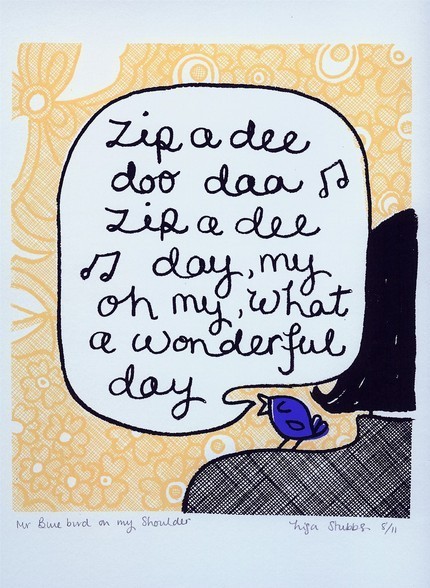 Zip a dee
doo daa
zip a dee
day, my
oh my, what
a wonderful
day
Mr Blue bird on my Shoulder
Lisa Stubbs 5/11